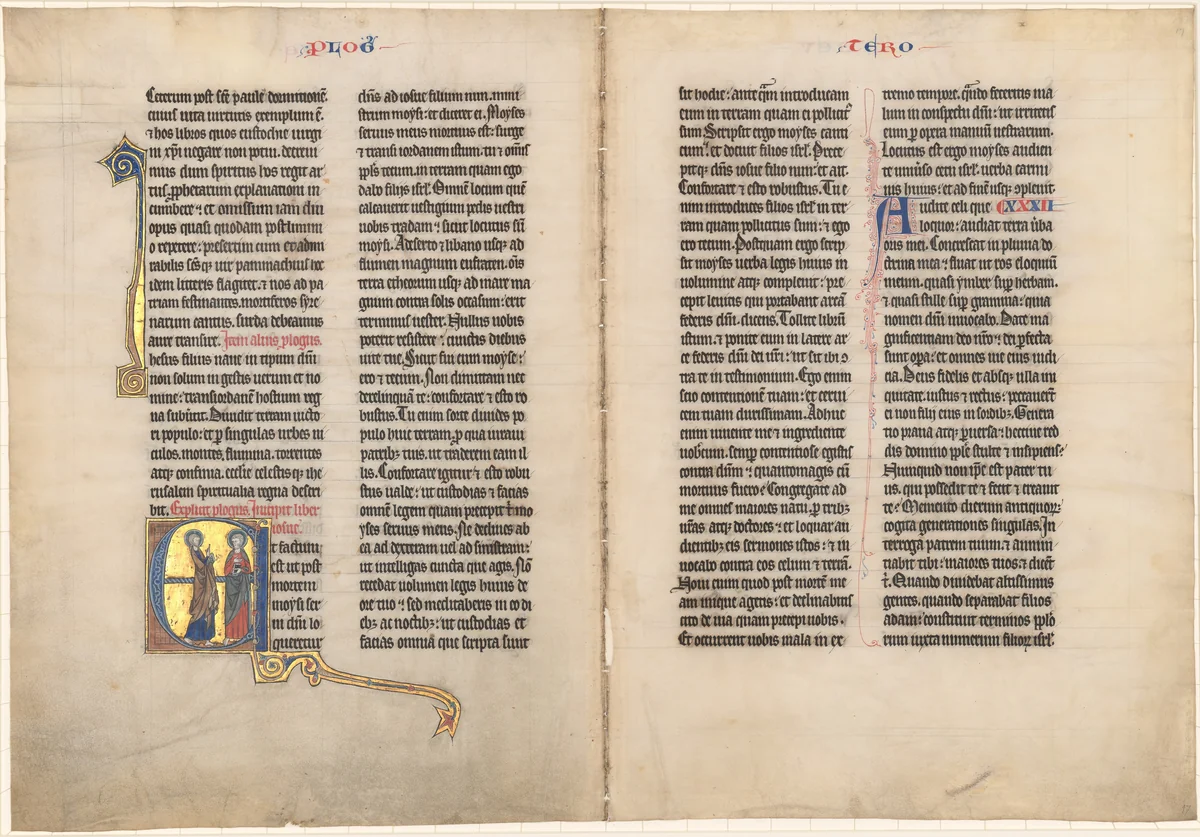 PLOG
Ceterum post sce paule dormitione.
cuius vita virtutis exemplum e.
⁊ hos libros quos eustochie virgi
ni xpi negare non potui. decrevi
mus dum spiritus hos regit ar
tus. prophetarum explanationi in
cumbere: et omissum iam diu
opus quasi quodam postlimini
o repetere: presertim cum et admi
rabilis scsq; vir pammachius hoc
idem litteris flagitet. ⁊ nos ad pa
triam festinantes. mortiferos syre
narum cantus. surda debeamus
aure transire. Item alius plogus.
hesus filius nave in typum dni
non solum in gestis verum et no
mine: transiordanem hostium reg
na subvertit. Dividit terram victo
ri populo: et p singulas urbes vi
culos. montes. flumina. torrentes
atq; confinia. ecclie celestisq; ihe
rusalem spiritualia regna descri
bit. Explicit plogus. Incipit liber
iosue.
t factum
est ut post
mortem
moysi ser
vi dni lo
queretur
dns ad iosue filium nun. mini
strum moysi: et diceret ei. Moyses
servus meus mortuus est: surge
⁊ transi iordanem istum. tu ⁊ omnis
ppls tecum. in terram quam ego
dabo filijs isrl. Omnem locum que
calcaverit vestigium pedis vestri
vobis tradam: sicut locutus sum
moysi. A deserto ⁊ libano usq; ad
flumen magnum eufraten. ois
terra etheorum usq; ad mare ma
gnum contra solis occasum: erit
terminus vester. Nullus vobis
poterit resistere: cunctis diebus
vite tue. Sicut fui cum moyse:
ero ⁊ tecum. Non dimittam nec
derelinqua te: confortare ⁊ esto ro
bustus. Tu enim sorte divides po
pulo huic terram. p qua iuravi
patribz tuis. ut traderem eam il
lis. Confortare igitur ⁊ esto robu
stus valde: ut custodias ⁊ facias
omnem legem quam precepit t mo
yses servus meus. Ne declines ab
ea ad dexteram vel ad sinistram:
ut intelligas cuncta que agis. No
recedat volumen legis huius de
ore tuo: sed meditaberis in eo di
ebz ac noctibz: ut custodias et
facias omnia que scripta sunt
TERO
sit hodie: ante qm introducam
eum in terram quam ei pollicit
sum. Scripsit ergo moyses canti
cum: et docuit filios isrl. Prece
pitq; dns iosue filio nun: et ait.
Confortare ⁊ esto robustus. Tu e
nim introduces filios isrl in ter
ram quam pollicitus sum: ⁊ ego
ero tecum. Postquam ergo scrip
sit moyses verba legis huius in
volumine atq; complevit: pre
cepit levitis qui portabant arca
federis dni. dicens. Tollite libru
istum. ⁊ ponite eum in latere ar
ce federis dni dei vri: ut sit ibi 9
tra te in testimonium. Ego enim
scio contentionem tuam: et cervi
cem tuam durissimam. Adhuc
enim vivente me ⁊ ingrediente
vobiscum. semp contentiose egistis
contra dnm: quantomagis cu
mortuus fuero: Congregate ad
me omnes maiores natu. p tribz
vras atq; doctores: et loquar au
dientibz eis sermones istos: ⁊ in
vocabo contra eos celum ⁊ terra.
Novi enim quod post mortem mea
am inique agetis: et declinabitis
cito de via quam precepi vobis.
Et occurrent vobis mala in ex
tremo tempore. qndo feceritis ma
lum in conspectu dni: ut irritetis
eum p opera manuum vestrarum.
Locutus est ergo moyses audien
te universo cetu isrl. verba carmi
nis huius: et ad finem usq; 9plevit.
Audite celi que CXXXII
loquor: audiat terra verba
oris mei. Concrescat in pluvia do
ctrina mea: fluat ut ros eloquium
meum. quasi ymber sup herbam.
⁊ quasi stille sup gramina: quia
nomen dni invocabo. Date ma
gnificentiam deo nro: dei pfecta
sunt opa: et omnes vie eius iudi
cia. Deus fidelis et absq; ulla ini
quitate. iustus ⁊ rectus: peccaverunt
ei non filij eius in sordibz. Genera
tio prava atq; pversa: heccine red
dis domino pple stulte ⁊ insipiens:
Nunquid non ipse est pater tu
us. qui possedit te ⁊ fecit ⁊ creavit
te: Memento dierum antiquor
cogita generationes singulas. In
terroga patrem tuum. ⁊ annun
tiabit tibi: maiores tuos: ⁊ dicent
t. Quando dividebat altissimus
gentes. quando separabat filios
adam: constituit terminos pplo
rum iuxta numerum filior isrl.